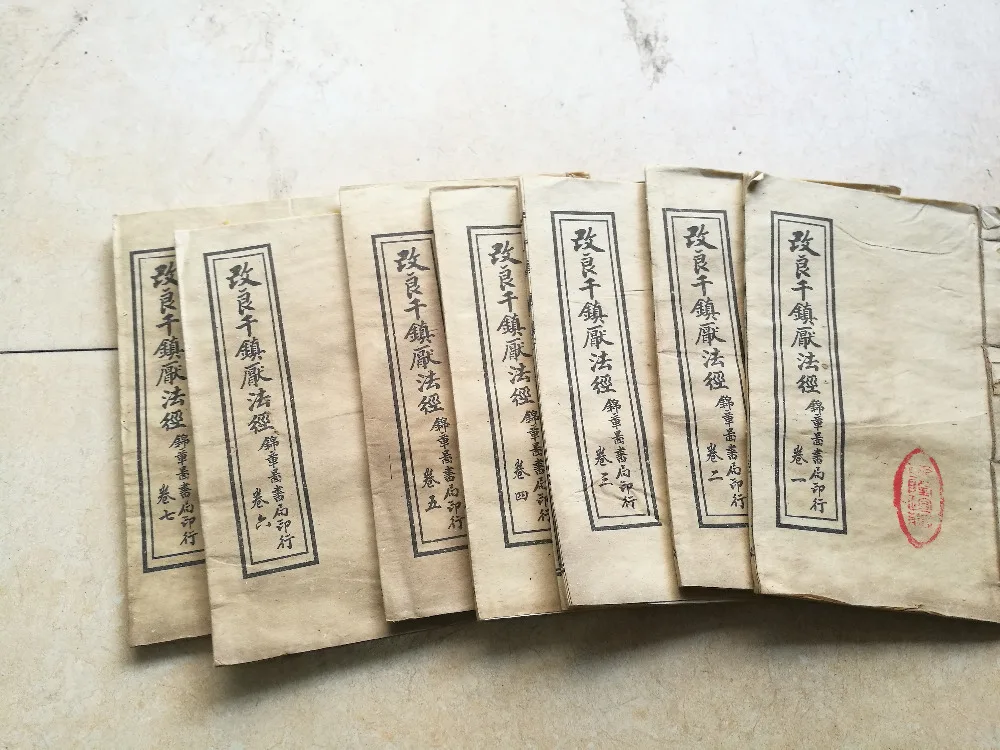 改良千鎮厭法經
錦章啚書局印行
卷一
改良千鎮厭法經
錦章啚書局印行
卷二
改良千鎮厭法經
錦章啚書局印行
卷三
改良千鎮厭法經
錦章啚書局印行
卷四
改良千鎮厭法經
錦章啚書局印行
卷五
改良千鎮厭法經
錦章啚書局印行
卷六
改良千鎮厭法經
錦章啚書局印行
卷七